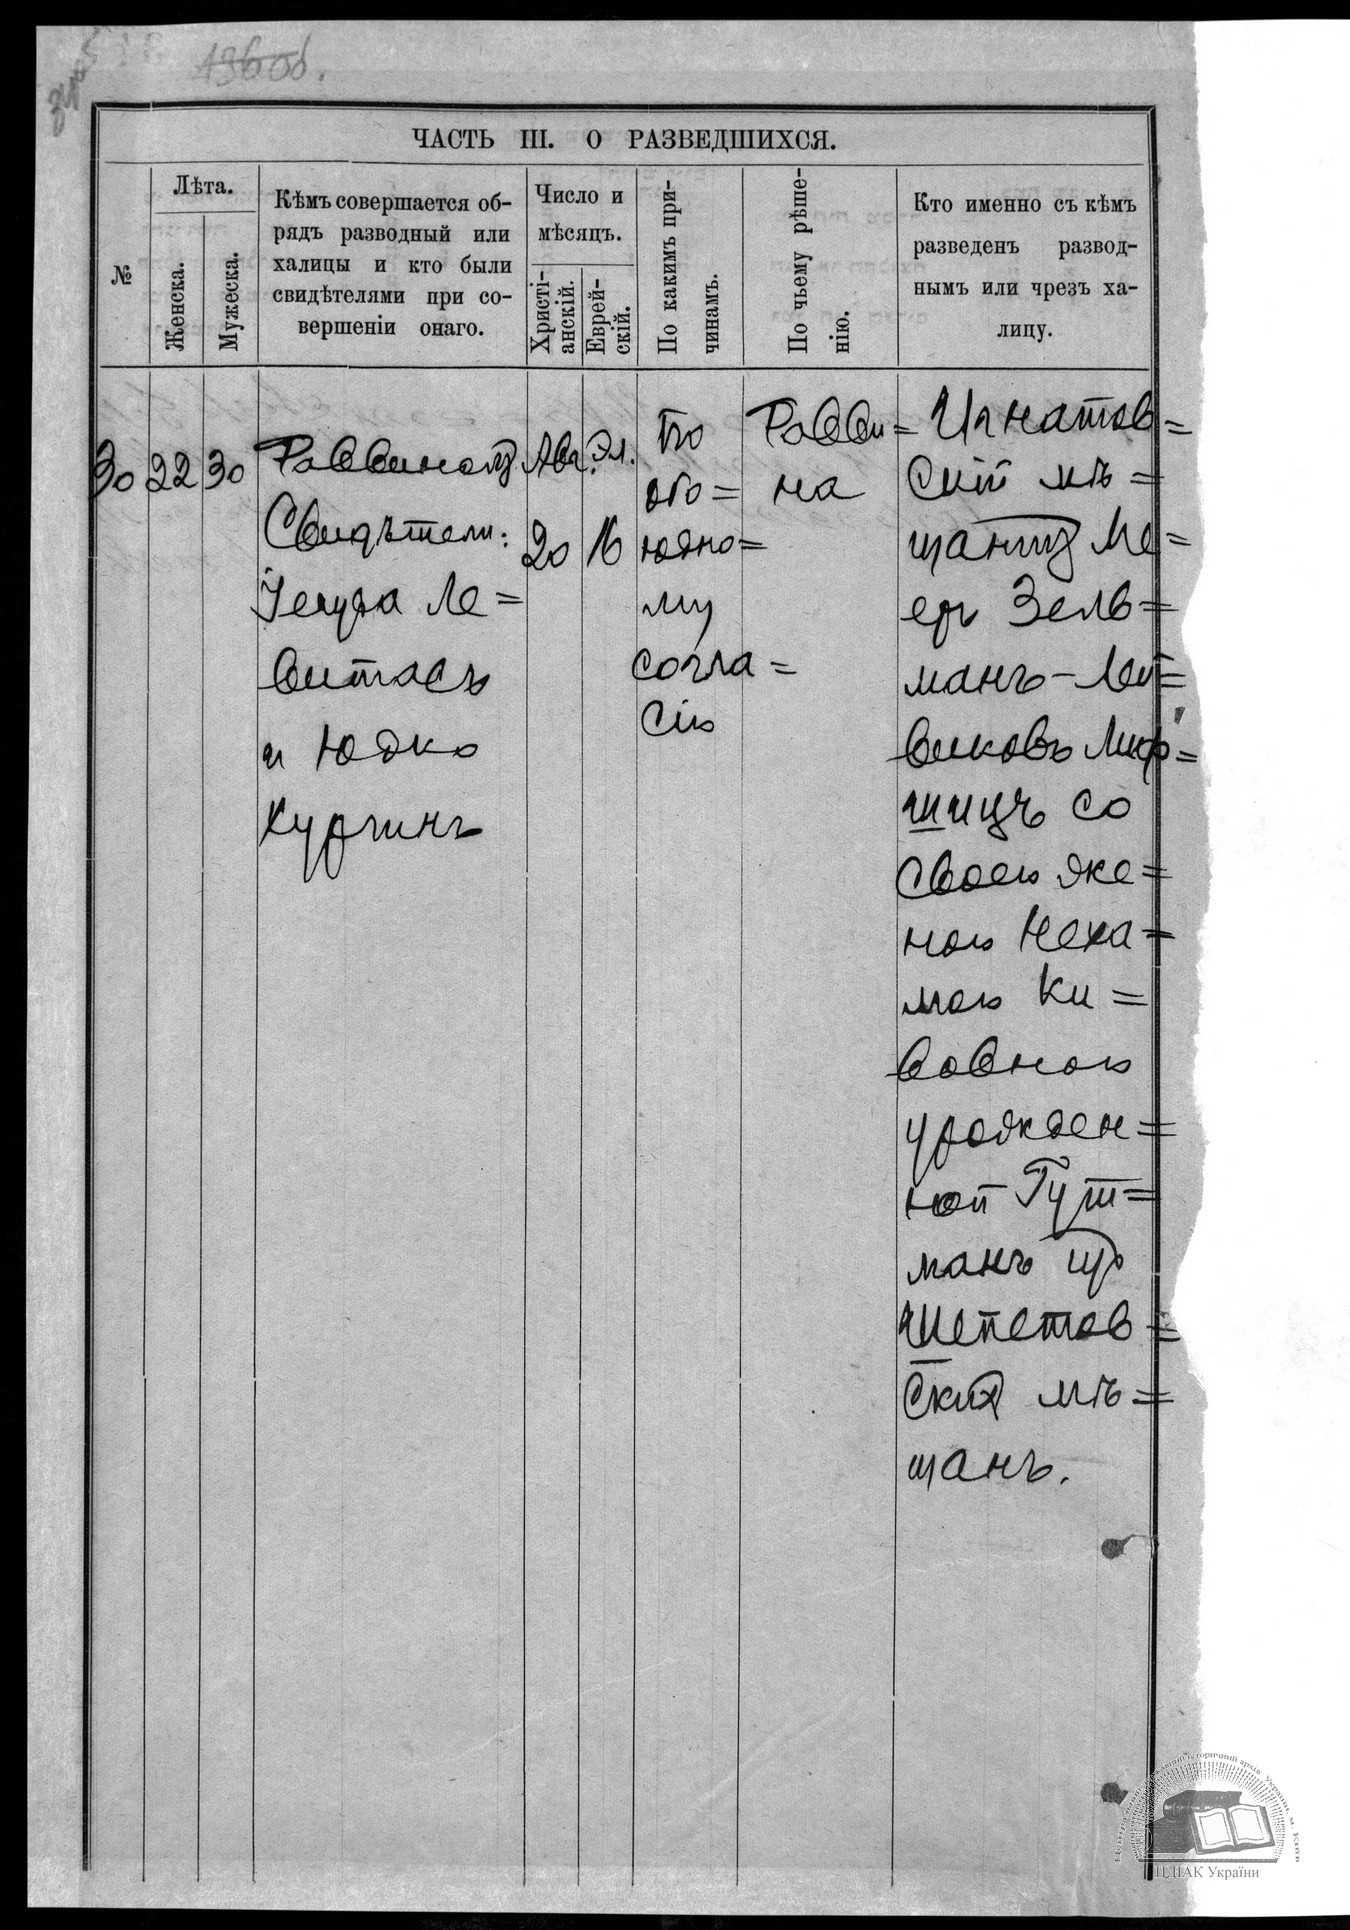 136об.
ЧАСТЬ III. О РАЗВЕДШИХСЯ.
№
Лѣта.
Женска.
Мужеска.
Кѣмъ совершается об-
рядъ разводный или
халицы и кто были
свидѣтелями при со-
вершеніи онаго.
Число и
мѣсяцъ.
Христі-
анскій.
Еврей-
скій.
По какимъ при-
чинамъ.
По чьему рѣше-
нію.
Кто именно съ кѣмъ
разведенъ развод-
нымъ или чрезъ ха-
лицу.
30
22
30
Раввиномъ
Свидѣтели:
Ле=
витасъ
и Юдко
Кургинъ
Авг.
20
Эл.
16
По
обо=
юдно=
му
согла=
сію
Равви=
на
Игнатов=
скій мѣ=
щанинъ Ме=
еръ Зель=
манъ-Лей=
виковъ Лиф=
шицъ со
своею же=
ною Неха=
мою Ки=
вовною
урожден=
ной Гут=
манъ изъ
Шепетов=
скихъ мѣ=
щанъ.
ЦДІАК України